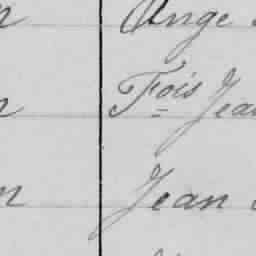 n Ange
n Fois Jea
n Jean